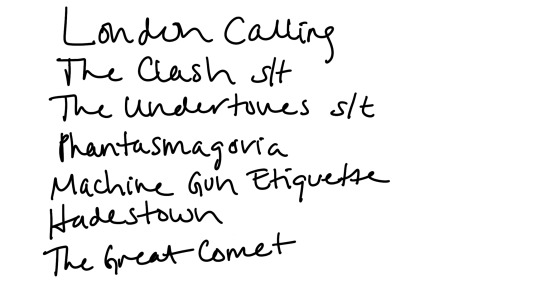 London Calling
The Clash s/t
The Undertones s/t
Phantasmagoria
Machine Gun Etiquette
Hadestown
The Great Comet